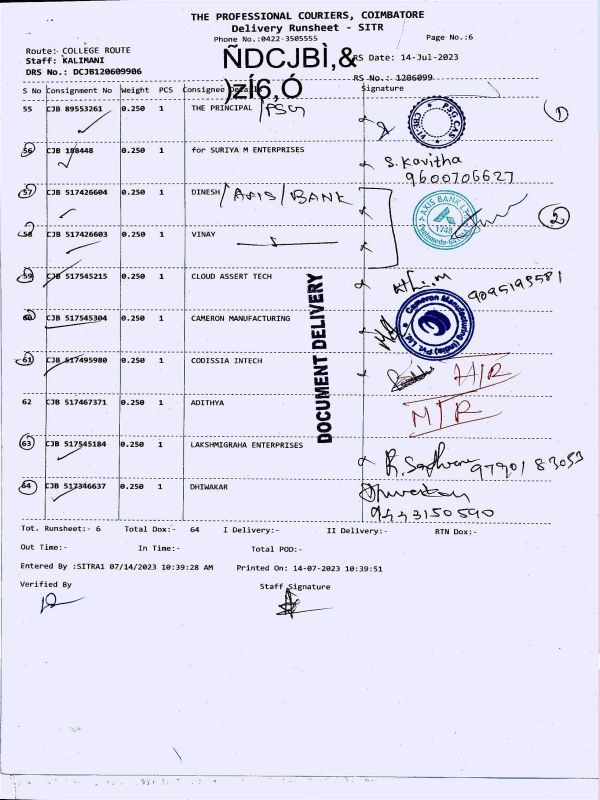 THE PROFESSIONAL COURIERS, COIMBATORE
Delivery Runsheet - SITR
Phone No.:0422-3505555 Page No.:6
Route: COLLEGE ROUTE
Staff: KALIMANI ÑDCJBÌ,& RS Date: 14-Jul-2023
DRS No.: DCJB120609906 )zÍ6,Ó RS No.: 1206099
S No Consignment No Weight PCS Consignee Details Signature
55 CJB 89553261 0.250 1 THE PRINCIPAL /PSG
56 CJB 188448 0.250 1 for SURIYA M ENTERPRISES S. Kavitha
9600706627
57 CJB 517426604 0.250 1 DINESH /AXIS/BANK AXIS BANK LTD 1748 2
58 CJB 517426603 0.250 1 VINAY
59 CJB 517545215 0.250 1 CLOUD ASSERT TECH
60 CJB 517545304 0.250 1 CAMERON MANUFACTURING Cameron Manufacturing (India) Pvt. Ltd.
61 CJB 517495980 0.250 1 CODISSIA INTECH H/R
62 CJB 517467371 0.250 1 ADITHYA M/R
63 CJB 517545184 0.250 1 LAKSHMIGRAHA ENTERPRISES
64 CJB 517346637 0.250 1 DHIWAKAR
9443150590
DOCUMENT DELIVERY
Tot. Runsheet:- 6 Total Dox:- 64 I Delivery:- II Delivery:- RTN Dox:-
Out Time:- In Time:- Total POD:-
Entered By :SITRA1 07/14/2023 10:39:28 AM Printed On: 14-07-2023 10:39:51
Verified By Staff Signature